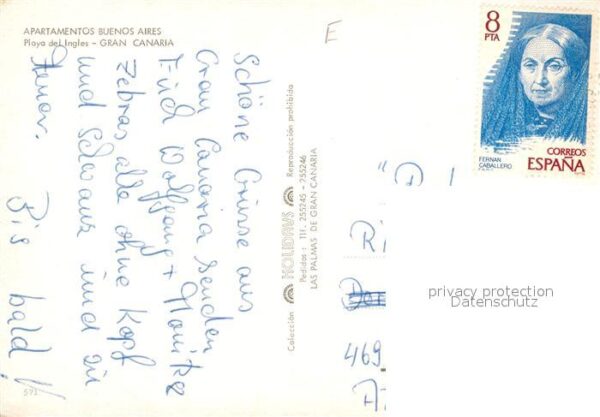 APARTAMENTOS BUENOS AIRES
Playa del Ingles – GRAN CANARIA
E
8
PTA
CORREOS
ESPAÑA
FERNAN
CABALLERO
Schöne Grüsse aus
Gran Canaria senden
Euch Wolfgang +
Zebras alle ohne Kopf
und Schwanz sind die
Bis bald!
Colección HOLIDAYS Reproducción prohibida
Pedidos: Tlf. 255245 - 255246
LAS PALMAS DE GRAN CANARIA
"D
Ri
469
privacy protection
Datenschutz
573